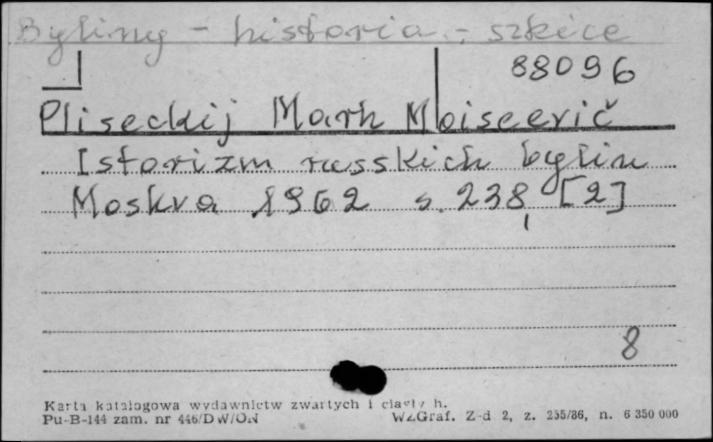 Byliny - historia - szkice
88096
Pliseckij Mark Moiseevič
Istorizm russkich bylin
Moskva 1962 s. 238, [2]
8
Karta katalogowa wydawnictw zwartych i ciągłych.
Pu-B-144 zam. nr 446/DW/ON WZGraf. Z-d 2, z. 235/86, n. 6 350 000